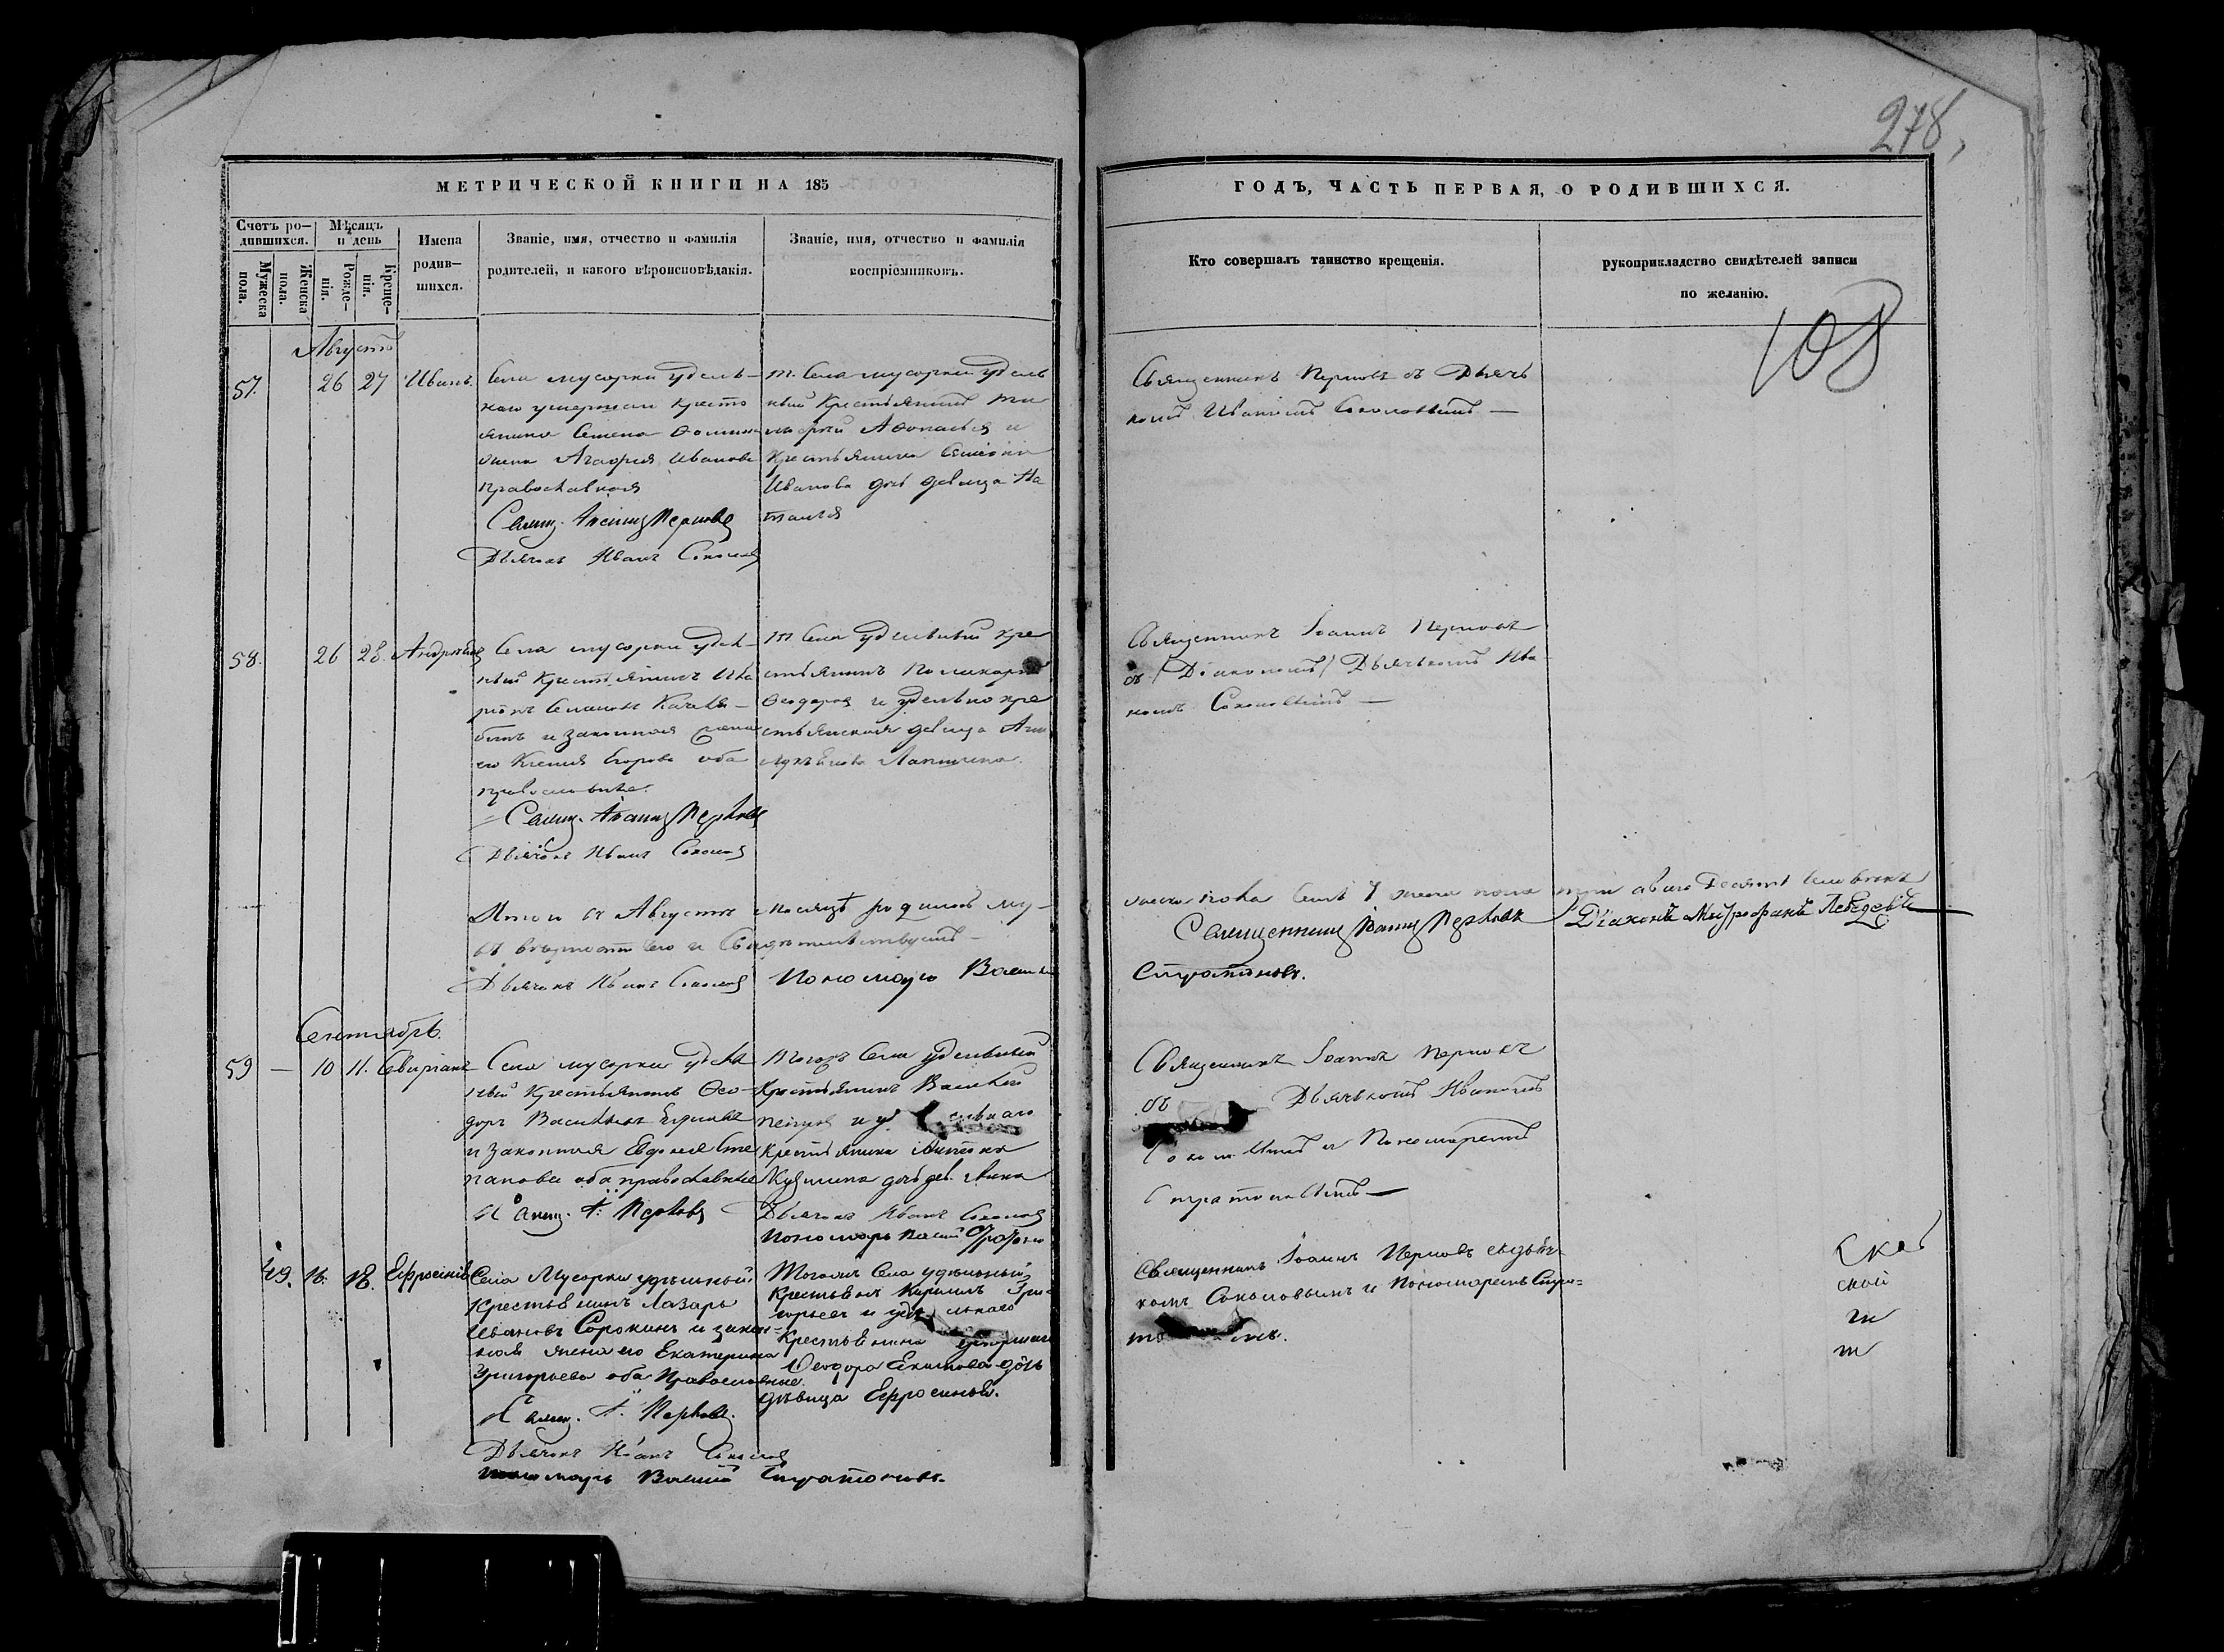 278,
МЕТРИЧЕСКОЙ КНИГИ НА 185
ГОДЪ, ЧАСТЬ ПЕРВАЯ, О РОДИВШИХСЯ.
Счетъ ро-
дившихся.
Мужеска
пола.
Женска
пола.
Мѣсяцъ
и день
Рожде-
нія.
Креще-
нія.
Имена
родив-
шихся.
Званіе, имя, отчество и фамилія
родителей, и какого вѣроисповѣданія.
Званіе, имя, отчество и фамилія
воспріемниковъ.
Кто совершалъ таинство крещенія.
рукоприкладство свидѣтелей записи
по желанію.
108
Августъ
57. 26 27 Иванъ.
Села мусорки удель-
наго умершаго кресть
янина Семена Ѳомина
жена Агафия Иванова
православная
Свящ. Іоаннъ Перловъ
Дьячокъ Иванъ Соколовъ
т. Села мусорки удель
ный Крестьянинъ Ти
мофей Аѳонасьев и
Крестьянина Симиона
Иванова дочь девица На
талья
Священникъ Перловъ съ Дьячь
комъ Иваномъ Соколовымъ —
58. 26 28. Андреянъ
Села мусорки удел-
ный Крестьянинъ
и законная жена
его Ксения Егорова оба
православные.
Свящ. Іоаннъ Перловъ
Дьячокъ Иванъ Соколовъ
т Села удельный кре
стьянинъ Поликарпъ
Ѳеодоров и удельно кре
стьянская девица Анна
Лапшина.
Священникъ Іоаннъ Перловъ
съ (Діакономъ) Дьячькомъ Ива-
номъ Соколовымъ —
Итого въ Августе месяцѣ родилось му-
жеска пола семь 7 женска пола три а всего Десять человекъ
въ верности сего и Свидетельствуемъ —
Священникъ Іоаннъ Перловъ Діаконъ Митрофанъ Лебедевъ
Дьячокъ Иванъ Соколовъ Пономарь Василий
Стратоновъ.
Сентябрь.
59 — 10 11. Севириянъ
Села мусорки удел
ный Крестьянинъ Ѳео-
доръ Васильевъ
и законная Евдокия Сте
панова оба православные
Свящ. І. Перловъ
Тогожъ Села удельный
Крестьянинъ Василий
Петров и удельнаго
Крестьянина Антона
Кузмина дочь дев. Анна
Дьячокъ Иванъ Соколовъ
Пономарь Васил Стратонов
Священникъ Іоаннъ Перловъ
съ Дьячькомъ Иваномъ
Соколовымъ и Пономаремъ
Стратоновымъ —
49. 16. 18. Ефросинія
Села Мусорки удѣльный
Крестьянинъ Лазарь
Ивановъ Сорокинъ и закон-
ная жена его Екатерина
Григорьева оба Православные.
Свящ. І. Перловъ.
Дьячокъ Иванъ Соколовъ
Пономарь Василій Стратоновъ.
Тогожъ Села удѣльный
Крестьянинъ Кирилъ Гри-
горьевъ и удѣльнаго
Крестьянина умершаго
Ѳеодора Екимова дочь
дѣвица Ефросинья.
Священникъ Іоаннъ Перловъ съ дьяч-
комъ Соколовымъ и Пономаремъ Стра-